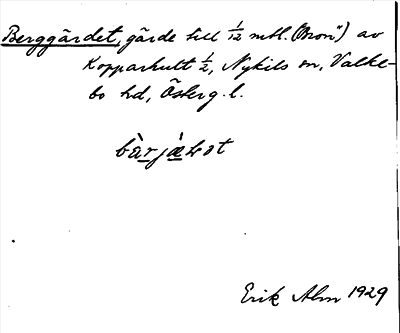 Berggärdet, gärde till 1/12 mtl. ("Mon") av
Kopparhult 1/2, Nykils sn, Valke-
bo hd, Österg. l.
Erik Alm 1929